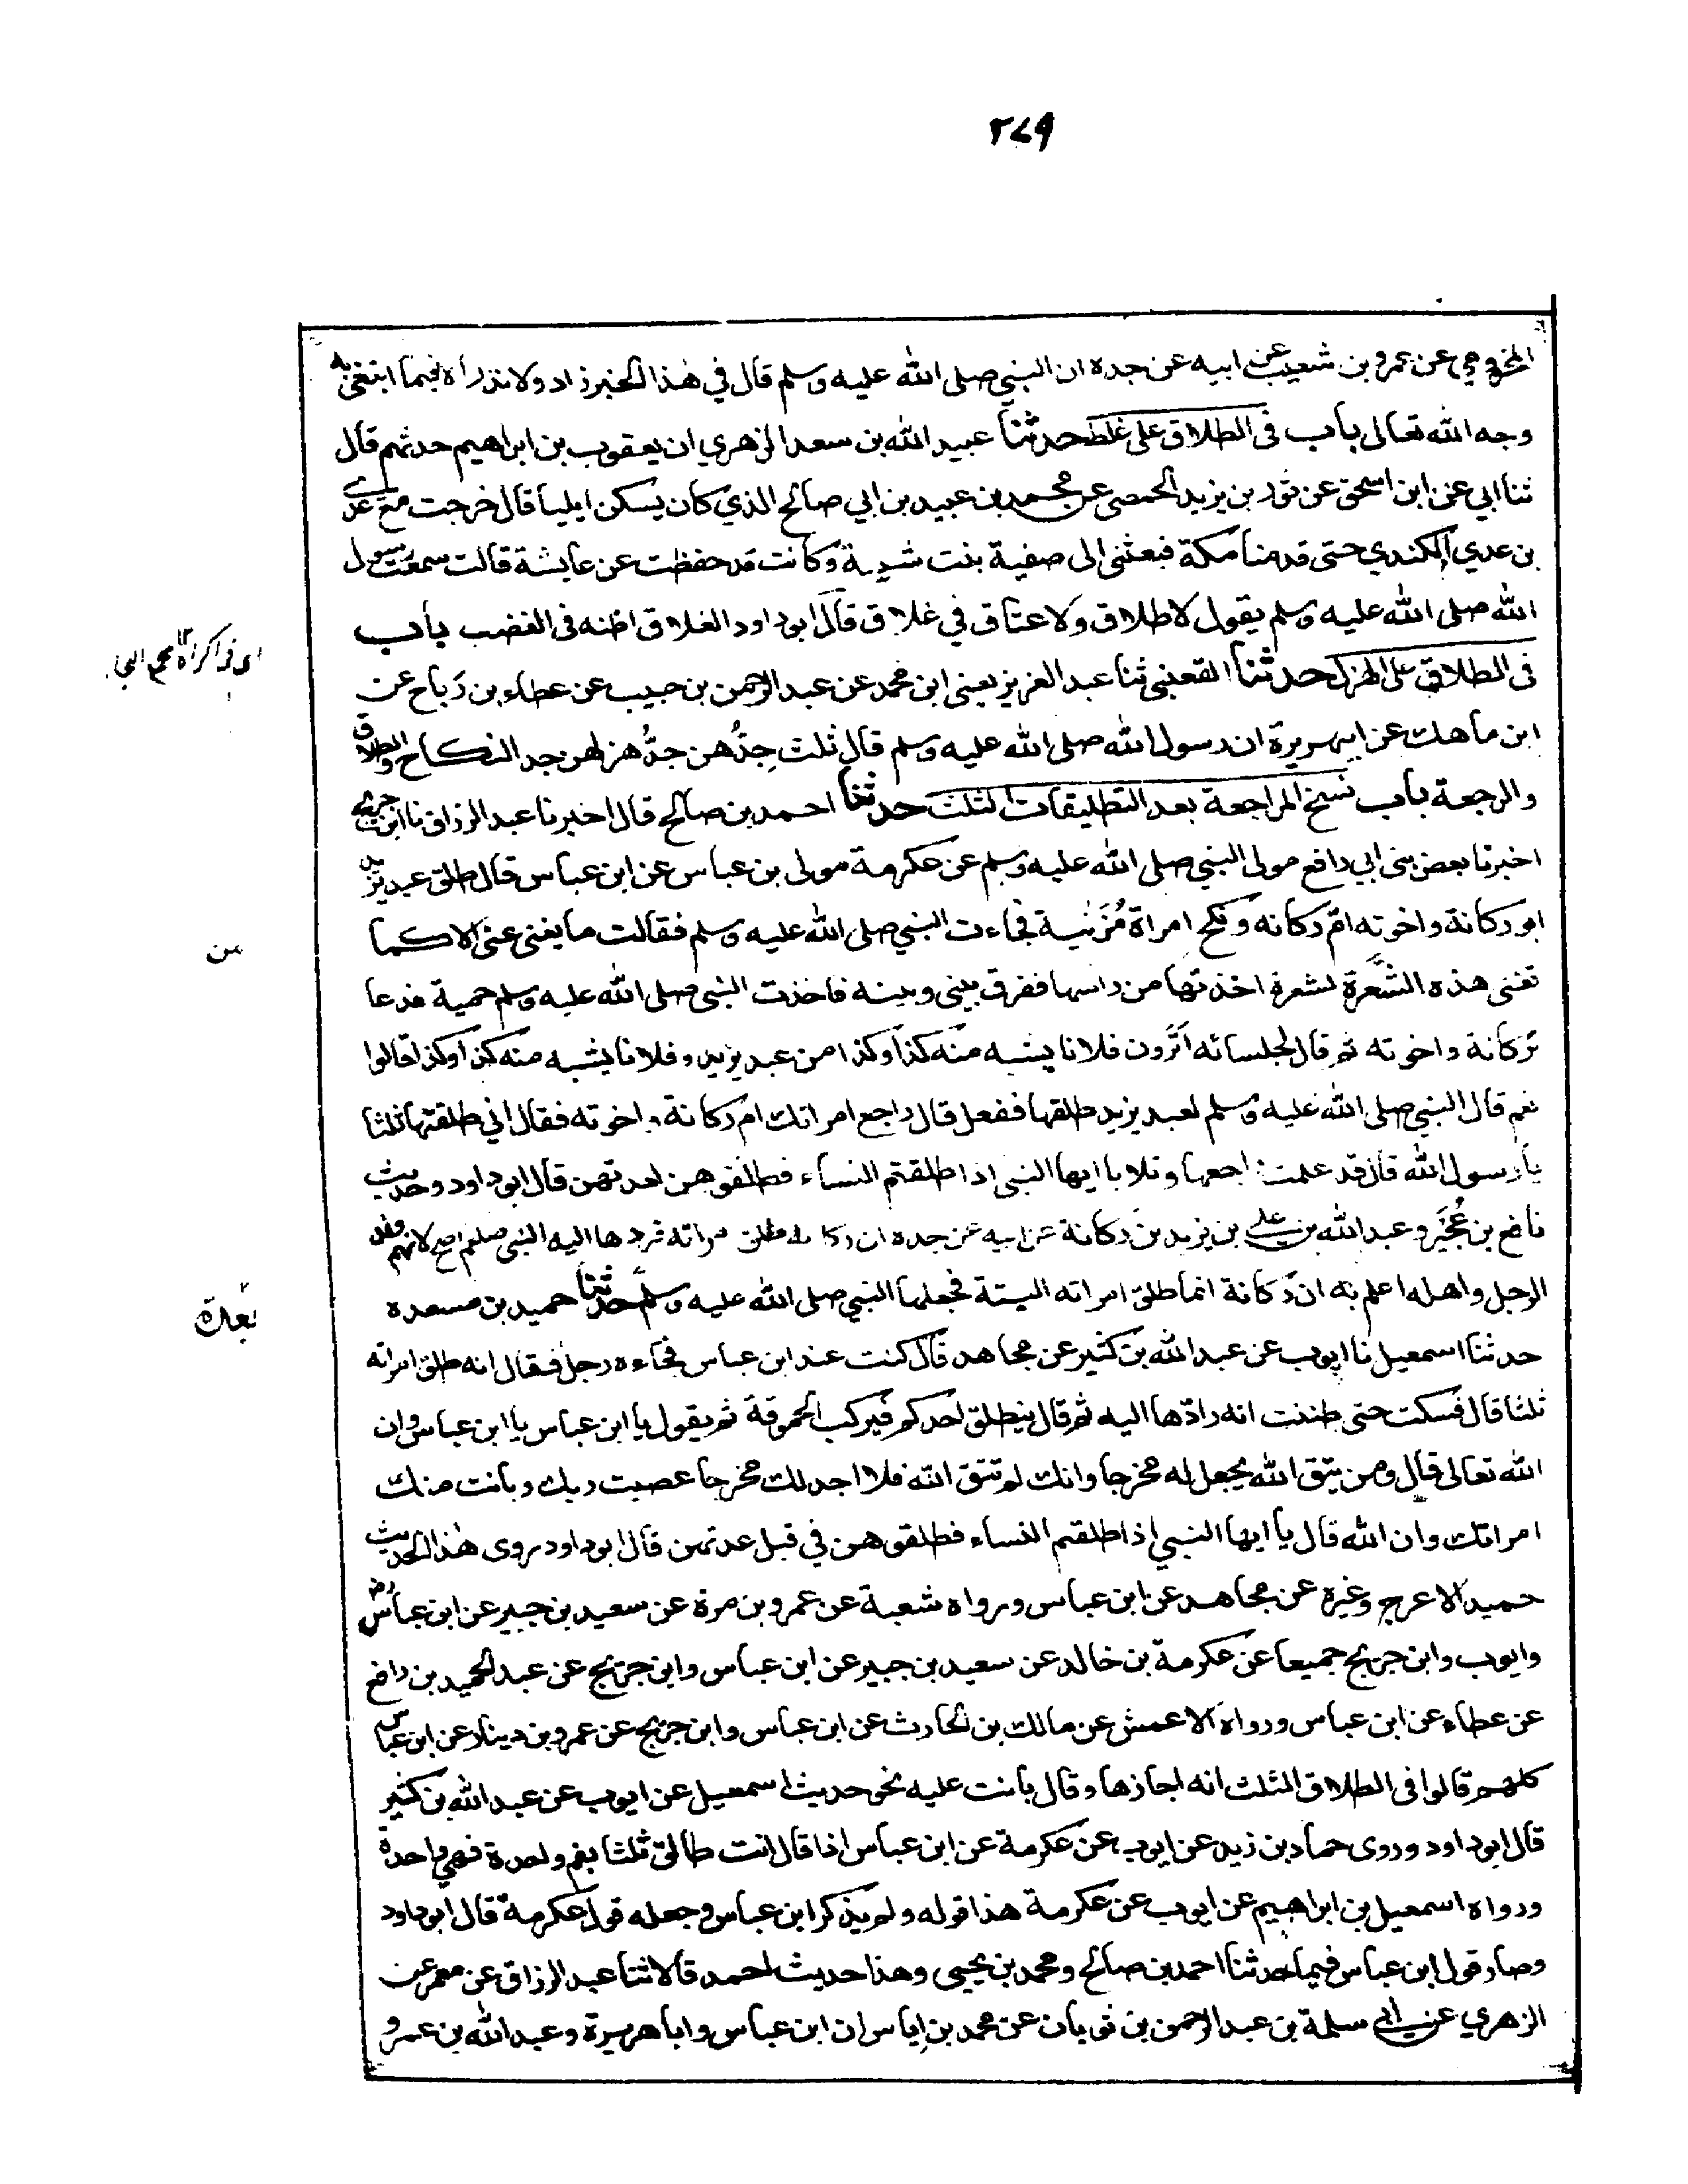 ٢٧٩
المخزومي عن عمرو بن شعيب عن ابيه عن جده ان النبي صلى الله عليه وسلم قال في هذا الخبر زاد ولا نذر الا فيما ابتغى به
وجه الله تعالى باب في الطلاق على غلط حدثنا عبيد الله بن سعد الزهري ان يعقوب بن ابراهيم حدثهم قال
ثنا ابي عن ابن اسحق عن ثور بن يزيد الحمصي عن محمد بن عبيد بن ابي صالح الذي كان يسكن ايليا قال خرجت مع عدي
بن عدي الكندي حتى قدمنا مكة فبعثني الى صفية بنت شيبة وكانت قد حفظت عن عايشة قالت سمعت رسول
الله صلى الله عليه وسلم يقول لا طلاق ولا عتاق في غلاق قال ابو داود الغلاق اظنه في الغضب باب
في الطلاق على الهزل حدثنا القعنبي ثنا عبد العزيز يعني ابن محمد عن عبد الرحمن بن حبيب عن عطاء بن رباح عن
ابن ماهك عن ابي هريرة ان رسول الله صلى الله عليه وسلم قال ثلث جدهن جد وهزلهن جد النكاح والطلاق
والرجعة باب نسخ المراجعة بعد التطليقات الثلث حدثنا احمد بن صالح قال اخبرنا عبد الرزاق نا ابن جريج
اخبرنا بعض بني ابي رافع مولى النبي صلى الله عليه وسلم عن عكرمة مولى بن عباس عن ابن عباس قال طلق عبد يزيد
ابو ركانة واخوته ام ركانه ونكح امراة مُزَنِية فجاءت النبي صلى الله عليه وسلم فقالت ما يغني عني الا كما
تغني هذه الشَّعرة لشعرة اخذتها من راسها ففرق بيني وبينه فاخذت النبي صلى الله عليه وسلم حمية فدعا
بركانة واخوته ثم قال لجلسائه اترون فلانا يشبه منه كذا وكذا من عبد يزيد وفلانا يشبه منه كذا وكذا قالوا
نعم قال النبي صلى الله عليه وسلم لعبد يزيد طلقها ففعل قال راجع امراتك ام ركانة واخوته فقال اني طلقتها ثلثا
يا رسول الله قال قد علمت راجعها وتلا يا ايها النبي اذا طلقتم النساء فطلقوهن لعدتهن قال ابو داود وحديث
نافع بن عُجَير وعبد الله بن علي بن يزيد بن ركانة عن ابيه عن جده ان ركانة طلق امراته فردها اليه النبي صلعم اصح لانهم ولد
الرجل واهله اعلم به ان ركانة انما طلق امراته البتة فجعلها النبي صلى الله عليه وسلم حدثنا حميد بن مسعده
حدثنا اسمعيل نا ايوب عن عبد الله بن كثير عن مجاهد قال كنت عند ابن عباس فجاءه رجل فقال انه طلق امراته
ثلثا قال فسكت حتى ظننت انه رادّها اليه ثم قال ينطلق احدكم فيركب الحموقة ثم يقول يا ابن عباس يا ابن عباس وان
الله تعالى قال ومن يتق الله يجعل له مخرجا وانك لم تتق الله فلا اجد لك مخرجا عصيت ربك وبانت منك
امراتك وان الله قال يا ايها النبي اذا طلقتم النساء فطلقوهن في قبل عدتهن قال ابو داود روى هذا الحديث
حميد الاعرج وغيره عن مجاهد عن ابن عباس ورواه شعبة عن عمرو بن مرة عن سعيد بن جبير عن ابن عباس رض
وايوب وابن جريج جميعا عن عكرمة بن خالد عن سعيد بن جبير عن ابن عباس وابن جريج عن عبد الحميد بن رافع
عن عطاء عن ابن عباس ورواه الاعمش عن مالك بن الحارث عن ابن عباس وابن جريج عن عمرو بن دينار عن ابن عباس
كلهم قالوا في الطلاق الثلث انه اجازها وقال بانت عليه نحو حديث اسمعيل عن ايوب عن عبد الله بن كثير
قال ابو داود وروى حماد بن زيد عن ايوب عن عكرمة عن ابن عباس اذا قال انت طالق ثلثا بفم واحدة فهي واحدة
ورواه اسمعيل بن ابراهيم عن ايوب عن عكرمة هذا قوله ولم يذكر ابن عباس وجعله قول عكرمة قال ابو داود
وصار قول ابن عباس فيما حدثنا احمد بن صالح ومحمد بن يحيى وهذا حديث احمد قالا ثنا عبد الرزاق عن معمر عن
الزهري عن ابي سلمة بن عبد الرحمن بن ثوبان عن محمد بن اياس ان ابن عباس وابا هريرة وعبد الله بن عمرو
من